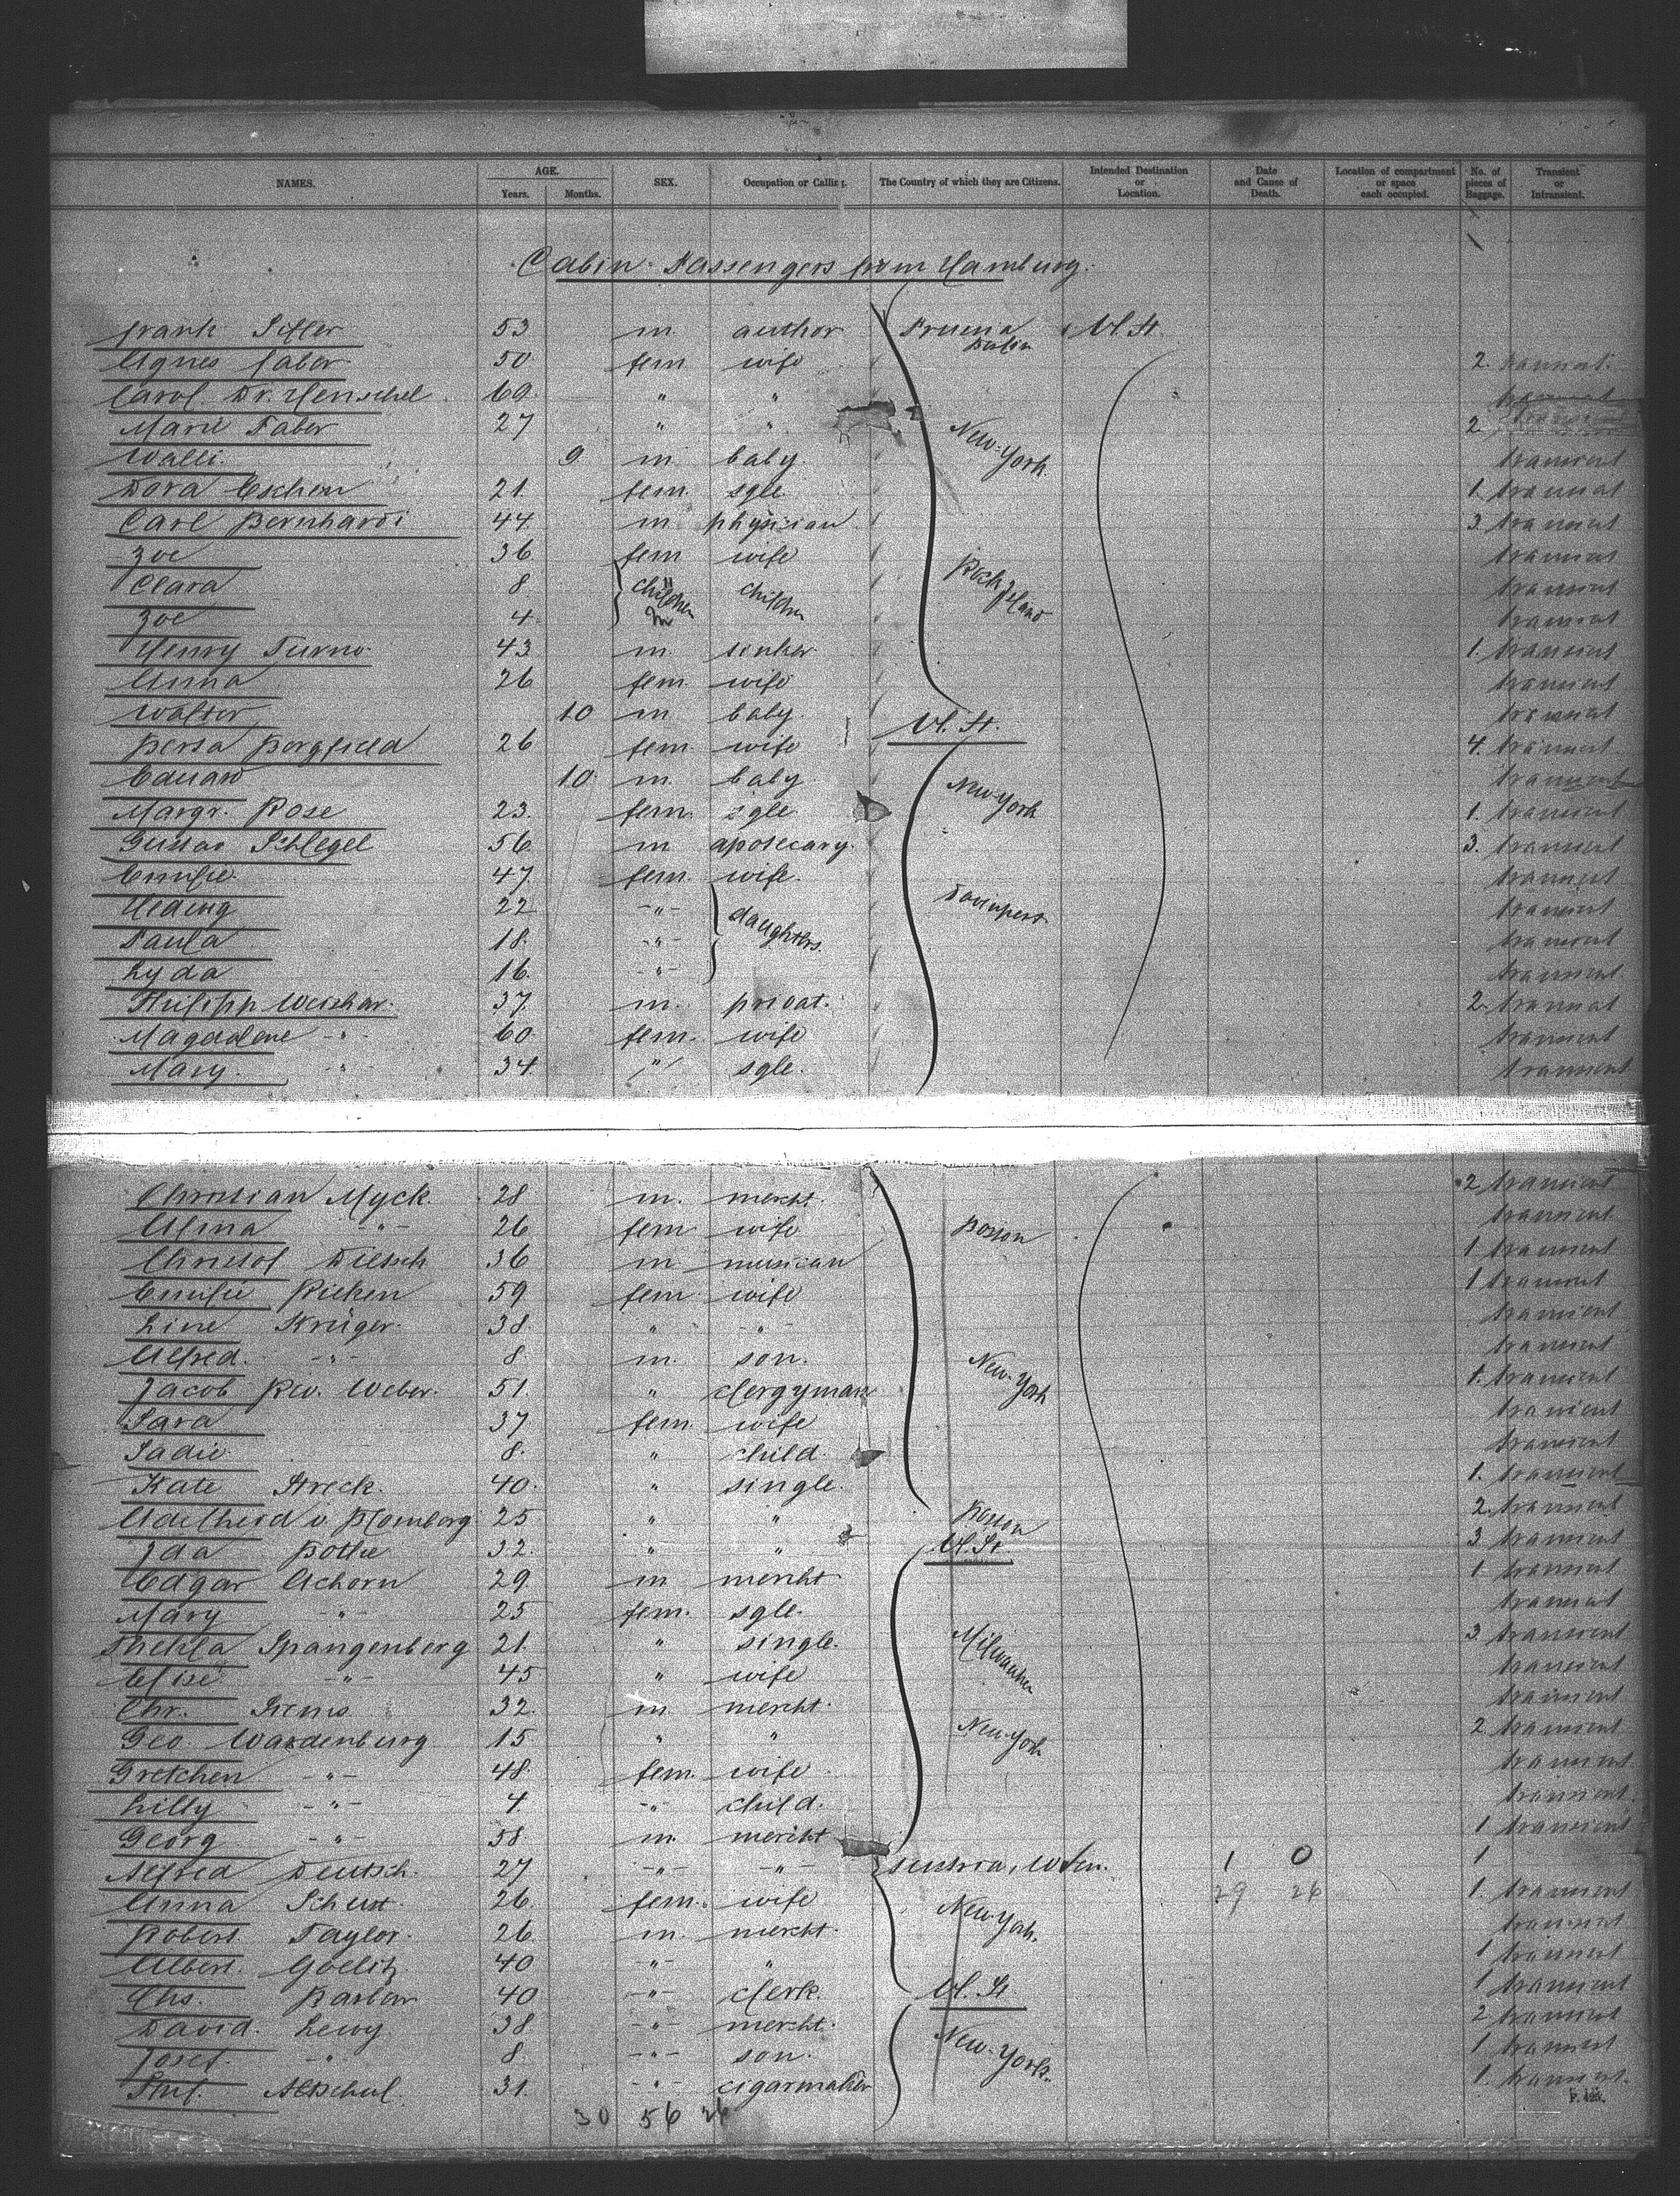 NAMES. AGE. Years. Months. SEX. Occupation or Calling. The Country of which they are Citizens. Intended Destination or Location. Date and Cause of Death. Location of compartment or space each occupied. No. of pieces of Baggage. Transient or Intransient.
Cabin Passengers from Hamburg.
Frank 53 m author Prussia Berlin U. St.
Agnes Faber 50 fem wife 2. transient
Carol. Dr. Henschel 69 " " transient
Marie Faber 27 " " 2.
Walli 9 m baby New-York transient
Dora Eschen 21 fem. sgle. 1. transient
Carl Bernhardi 44 m physician 3. transient
Zoe 36 fem wife transient
Clara 8 children children Rock Island transient
Zoe 4 transient
Henry Turno 43 m 1. transient
Anna 26 fem. wife transient
Walter 10 m baby U. St. transient
Bergfield 26 fem. wife 4. transient
Eduard 10 m. baby New-York transient
Margr. Rose 23. fem. sgle 1. transient
Gustav Schlegel 56 m aposecary. 3. transient
Emilie 47 fem. wife. transient
Hedwig 22 -"- daughters. transient
Paula 18. -"- transient
Lyda 16. -"- transient
Philipp 37. m. privat. 2. transient
Magdalene -"- 60. fem. wife transient
Mary. " 34. " sgle. transient
Christian Myck 28 m. mercht. 2 transient
Alma -"- 26 fem wife Boston transient
Christof Dietsch 36 m musician 1 transient
Emilie Ricken 59 fem wife 1 transient
Line Krüger 38 " -"- transient
Alfred. -"- 8 m. son. New-York transient
Jacob Rev. Weber. 51. " clergyman 1. transient
Sara 37 fem. wife transient
Sadie 8. " child transient
Kate Streck. 40. " single. 1. transient
Adelheid v. Blomberg 25 " " Boston 2. transient
Ida Bothe 32. " " U. St. 3 transient
Edgar Achorn 29 m mercht 1 transient
Mary -"- 25 fem. sgle. transient
Thekla Spangenberg 21. " single. Milwaukee 3. transient
Elise -"- 45 " wife transient
Chr. 32. m mercht. transient
Geo Wardenburg 15. " " New-York 2 transient
Gretchen -"- 48. fem. wife transient
Lilly -"- 4. -"- child. transient
Georg -"- 58. m. mercht 1 transient
Alfred Deutsch. 27 -"- -"- Austria, Wien. 1 0 1
Anna 26. fem. wife New-York. 29 26 1. transient
Robert Taylor. 26 m. mercht. transient
Albert Goelitz 40 -"- " 1 transient
Chs. Barbour 40 -"- clerk. U. St. 1 transient
David. Lewy. 38 -"- mercht. New-York. 2 transient
Josef. -"- 8. -"- son. 1 transient
Altschul. 31. -"- cigarmaker 1. transient.
30 56 26